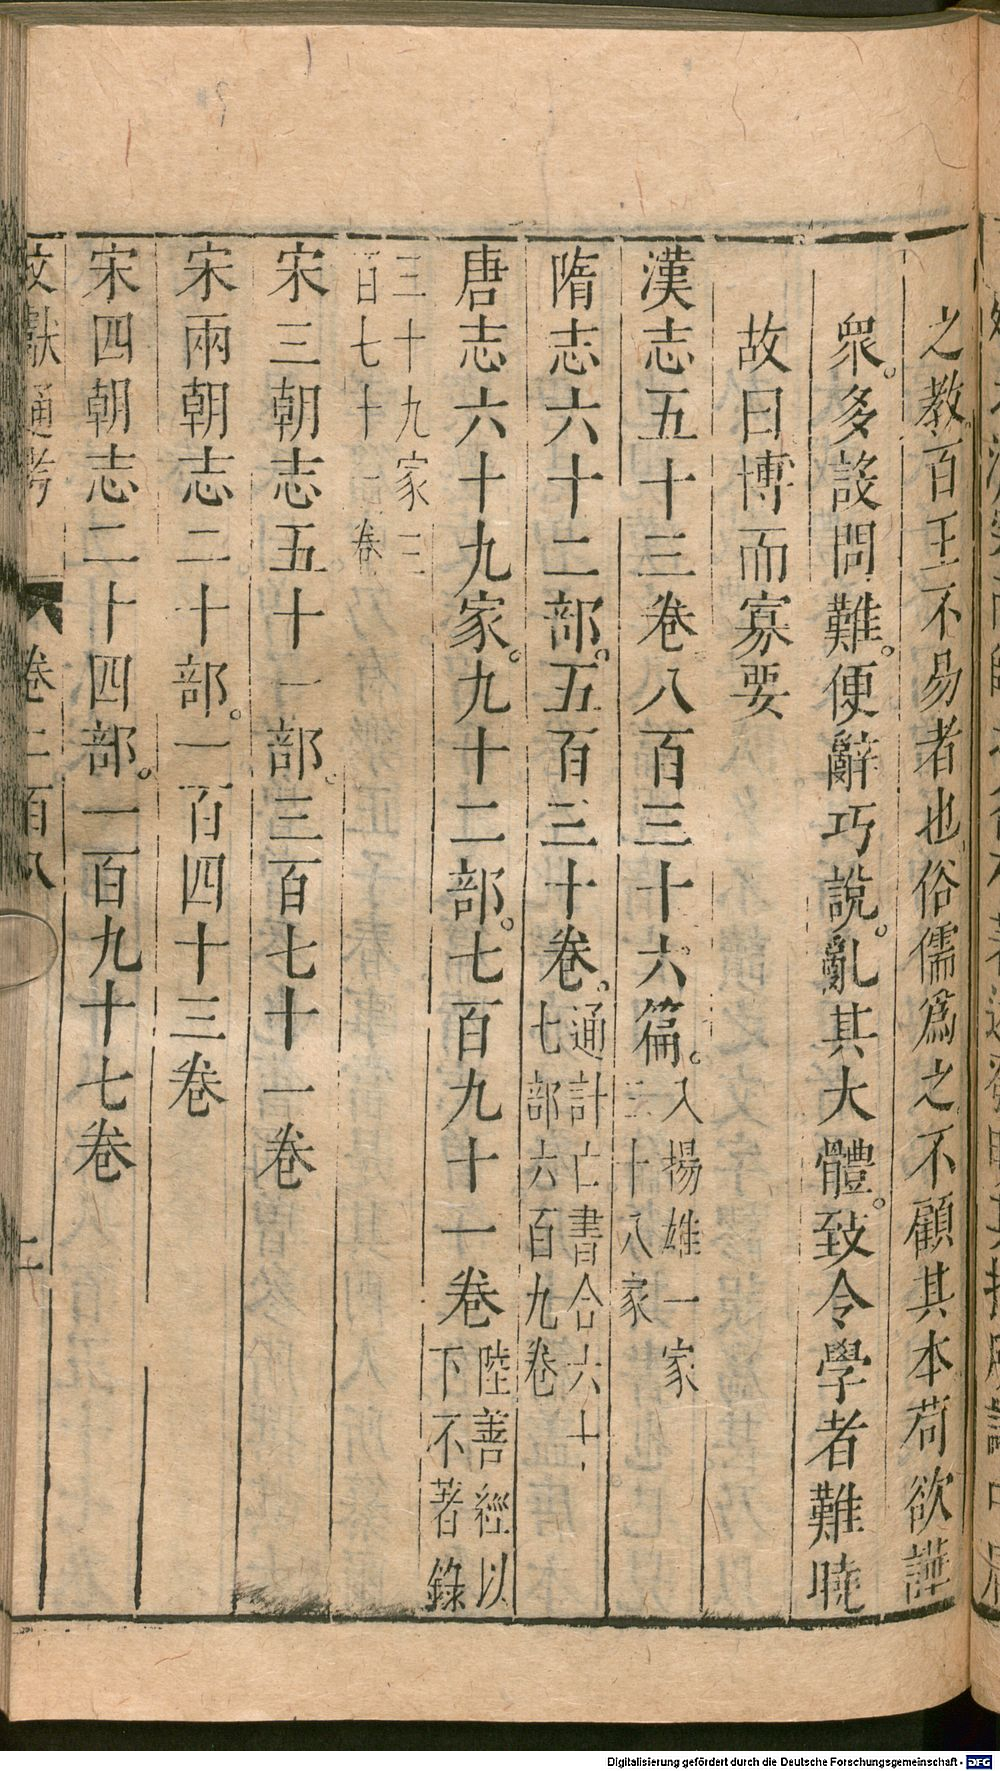 之教百王不易者也俗儒爲之不顧其本苟欲譁
衆。多設問難。便辭巧說。亂其大體。致令學者難曉
故曰博而寡要
漢志五十三卷八百三十六篇。入揚雄一家
三十八家
隋志六十二部。五百三十卷。通計亡書合六十
七部六百九卷
唐志六十九家。九十二部。七百九十一卷陸善經以
下不著錄
三十九家三
百七十一卷
宋三朝志五十一部。三百七十一卷
宋兩朝志二十部。一百四十三卷
宋四朝志二十四部。一百九十七卷
文獻通考 卷二百八
Digitalisierung gefördert durch die Deutsche Forschungsgemeinschaft - DFG